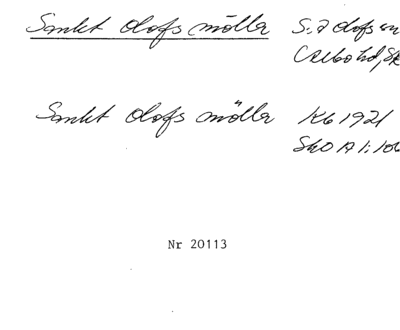 Sankt Olofs mölla S:t Olofs sn
Albo hd, Sk
Sankt Olofs mölla Kb 1921
SkO A I:
Nr 20113